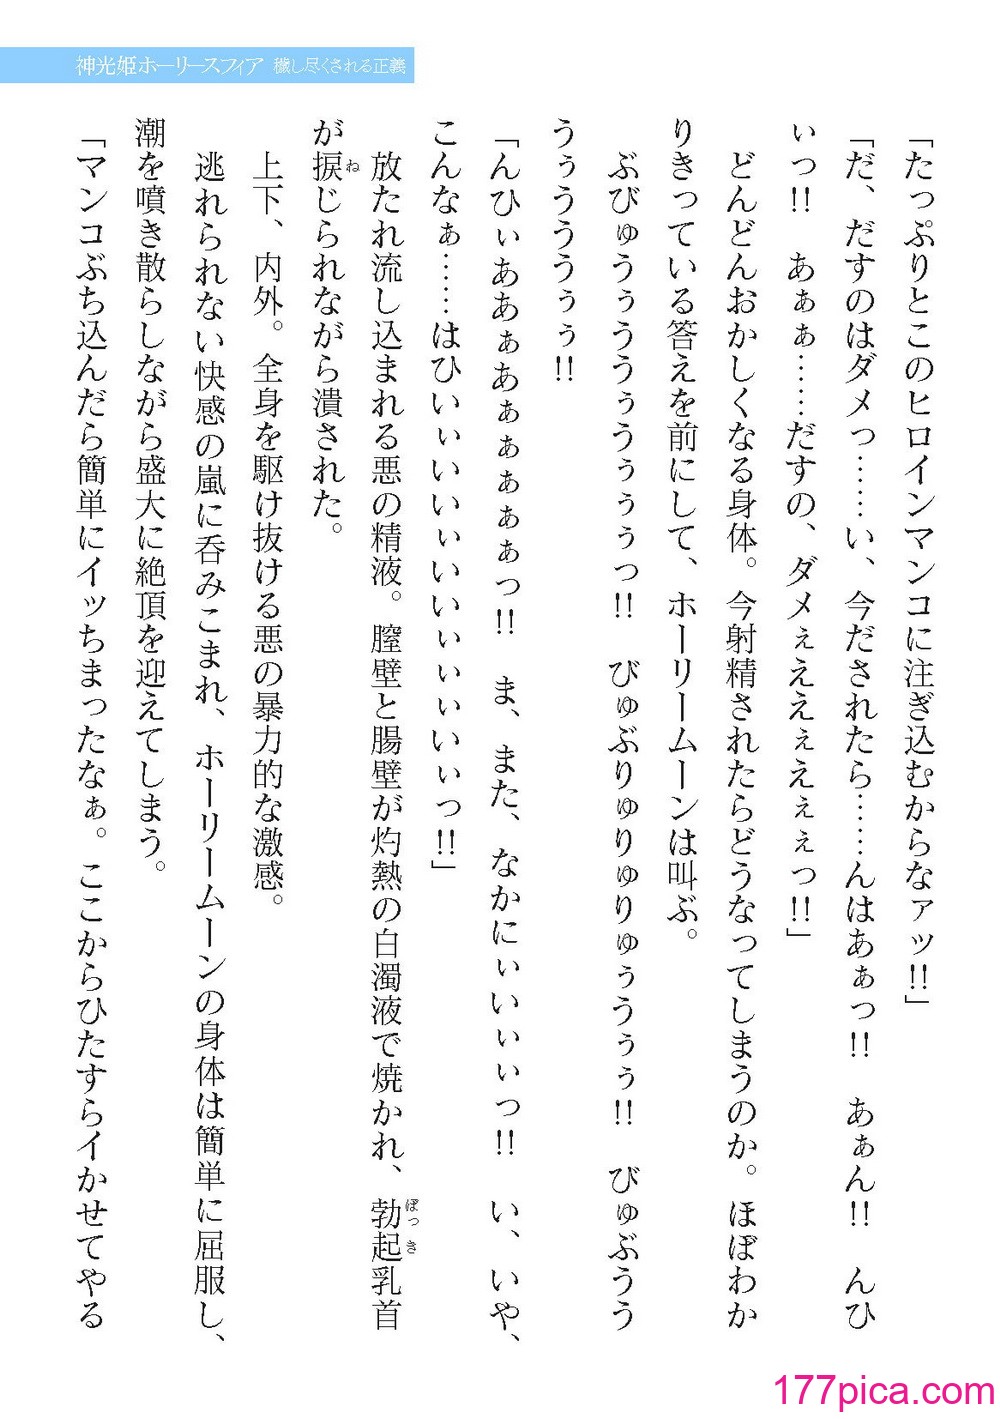 神光姫ホーリースフィア 穢し尽くされる正義
「たっぷりとこのヒロインマンコに注ぎ込むからなァッ!!」
「だ、だすのはダメっ……い、今だされたら……んはあぁっ!!　あぁん!!　んひ
ぃっ!!　あぁぁ……だすの、ダメぇええぇえぇぇっ!!」
どんどんおかしくなる身体。今射精されたらどうなってしまうのか。ほぼわか
りきっている答えを前にして、ホーリームーンは叫ぶ。
ぶびゅうぅううぅうぅぅぅっ!!　びゅぶりゅりゅりゅぅうぅぅ!!　びゅぶうう
うぅうううぅぅ!!
「んひぃああぁあぁぁぁぁぁっ!!　ま、また、なかにぃいぃぃっ!!　い、いや、
こんなぁ……はひいぃいぃぃいぃぃぃいぃっ!!」
放たれ流し込まれる悪の精液。膣壁と腸壁が灼熱の白濁液で焼かれ、勃起乳首
が捩じられながら潰された。
上下、内外。全身を駆け抜ける悪の暴力的な激感。
逃れられない快感の嵐に呑みこまれ、ホーリームーンの身体は簡単に屈服し、
潮を噴き散らしながら盛大に絶頂を迎えてしまう。
「マンコぶち込んだら簡単にイッちまったなぁ。ここからひたすらイかせてやる
177pica.com